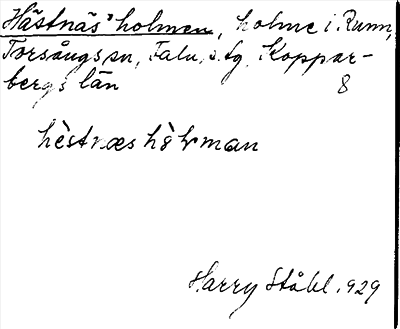 Hästnäs'holmen, holme i Runn,
Torsångs sn, Falu s. tg, Koppar-
bergs län 8
hèstnæs hòlman
Harry Ståhl. 929